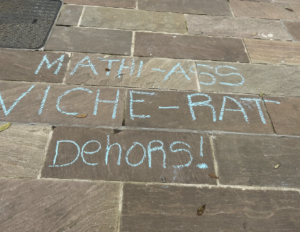 MATHI-ASS
VICHE-RAT
DehORS!